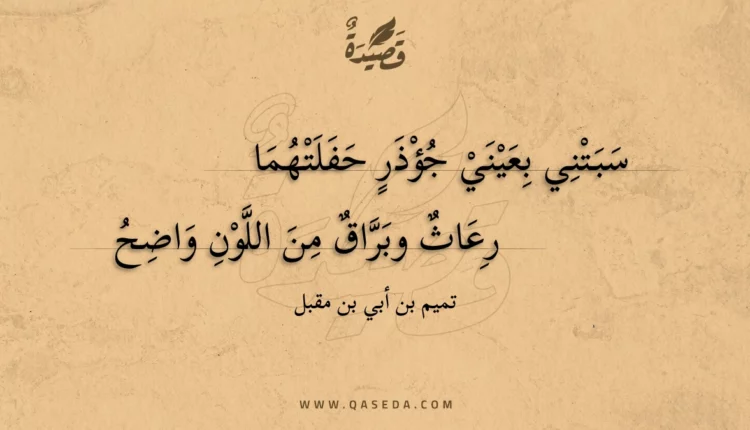 قَصِيْدَةٌ
سَبَتْنِي بِعَيْنَيْ جُؤْذَرٍ حَفَلَتْهُمَا
رِعَاثٌ وبَرَّاقٌ مِنَ اللَّوْنِ وَاضِحُ
تميم بن أبي بن مقبل
WWW.QASEDA.COM